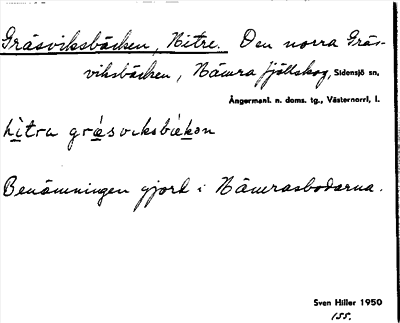 Gräsviksbäcken, Hitre. Den norra Gräs-
viksbäcken, Nämra fjällskog, Sidensjö sn,
Ångermanl. n. doms. tg., Västernorrl. l.
hìtra gräsviksbäkən
Benämningen gjord i Nämrasbodarna.
Sven Hiller 1950
155.